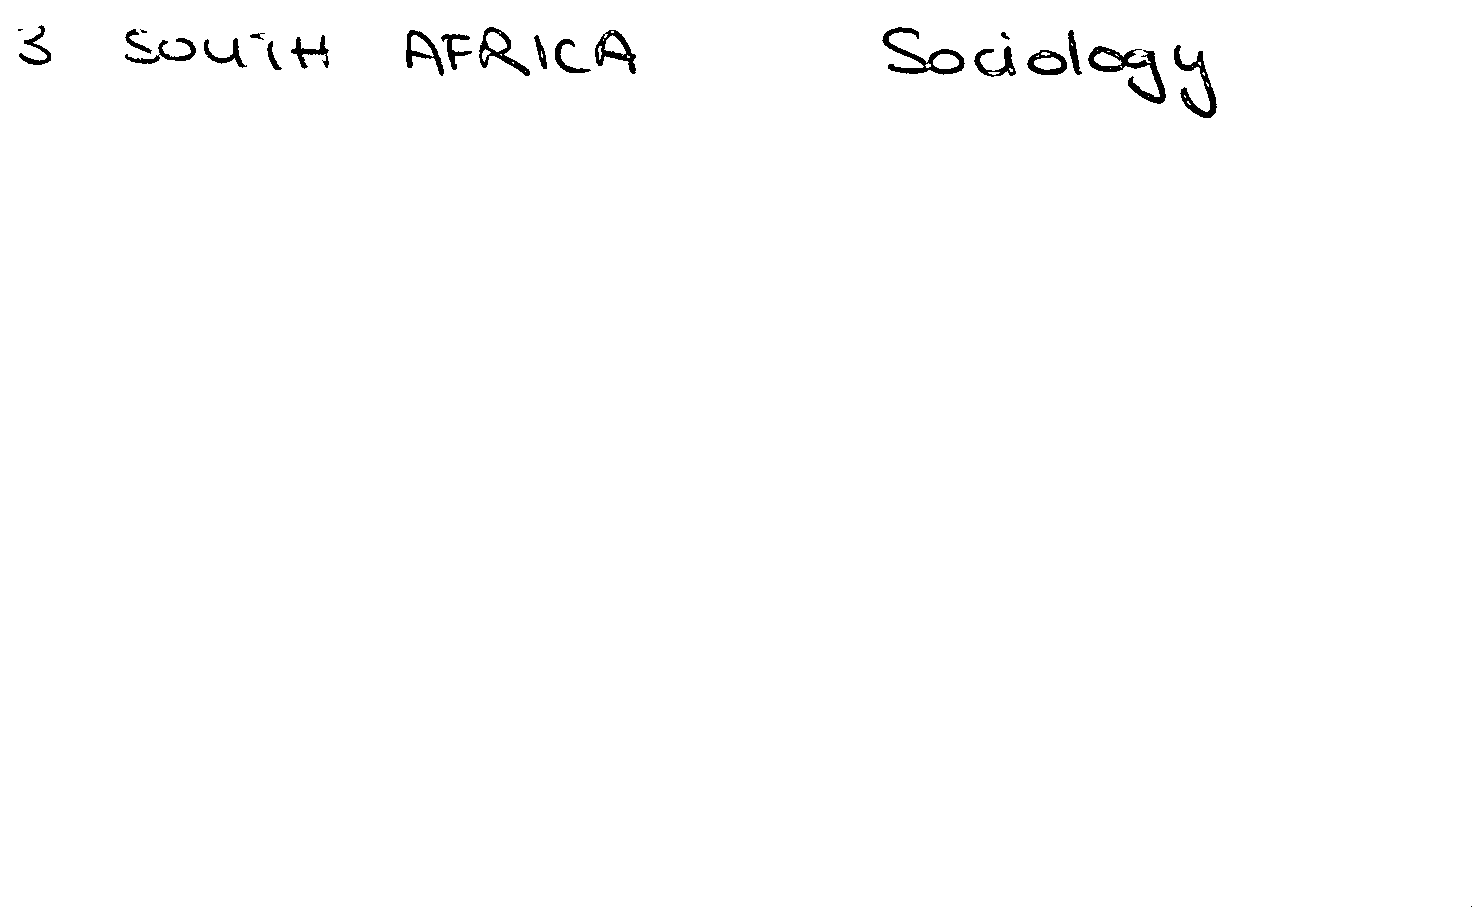 3 SOUTH AFRICA Sociology